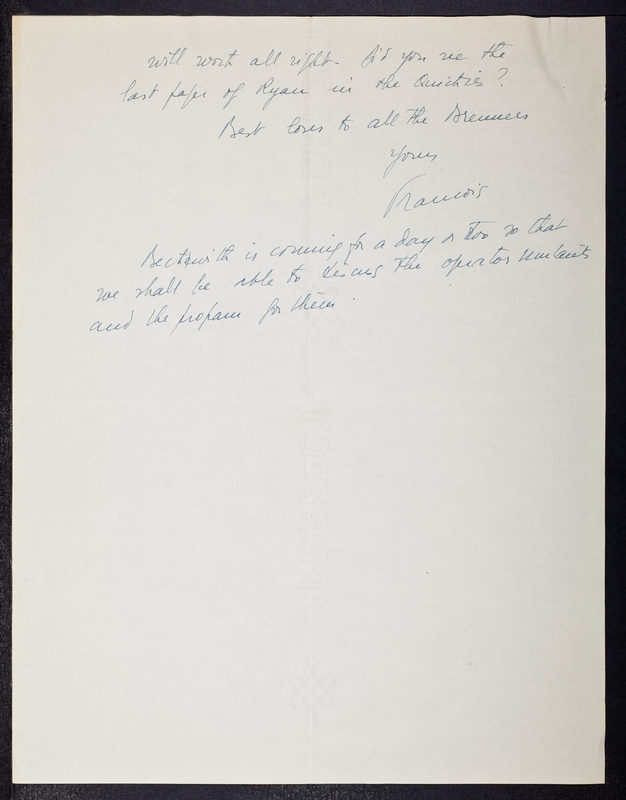 will work all right. Did you see the
last paper of Ryan in the Quickies?
Best loves to all the Brenners
Yours
Francois
Beckwith is coming for a day or two so that
we shall be able to discuss the operator mutants
and the program for them.